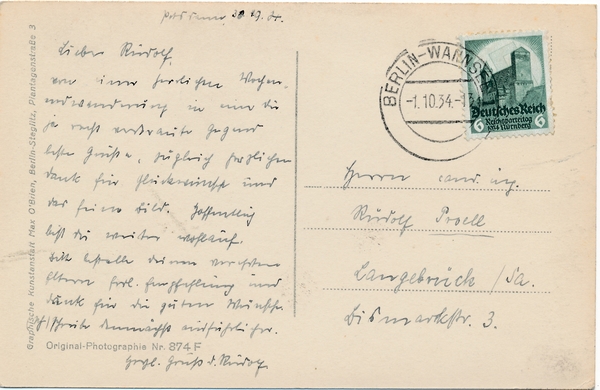 30.9.34.
Lieber Rudolf,
von einer herrlichen Wochen-
endwanderung in eine dir
ja recht vertraute Gegend
beste Grüße, zugleich herzlichen
Dank für Glückwünsche und
das feine Bild. Hoffentlich
bist du weiter wohlauf.
Bitte bestelle deinen verehrten
Eltern frdl. Empfehlung und
Dank für die guten Wünsche.
Ich schreibe demnächst ausführlicher.
Herzl. Gruß d. Rudolf
Original-Photographie Nr. 874 F
Graphische Kunstanstalt Max O'Brien, Berlin-Steglitz, Plantagenstraße 3
BERLIN-WANNSEE
-1.10.34.-
Deutsches Reich
Reichsparteitag
1934 Nürnberg
6 6
Herrn cand. ing.
Rudolf Proell
Langebrück /Sa.
Bismarckstr. 3.